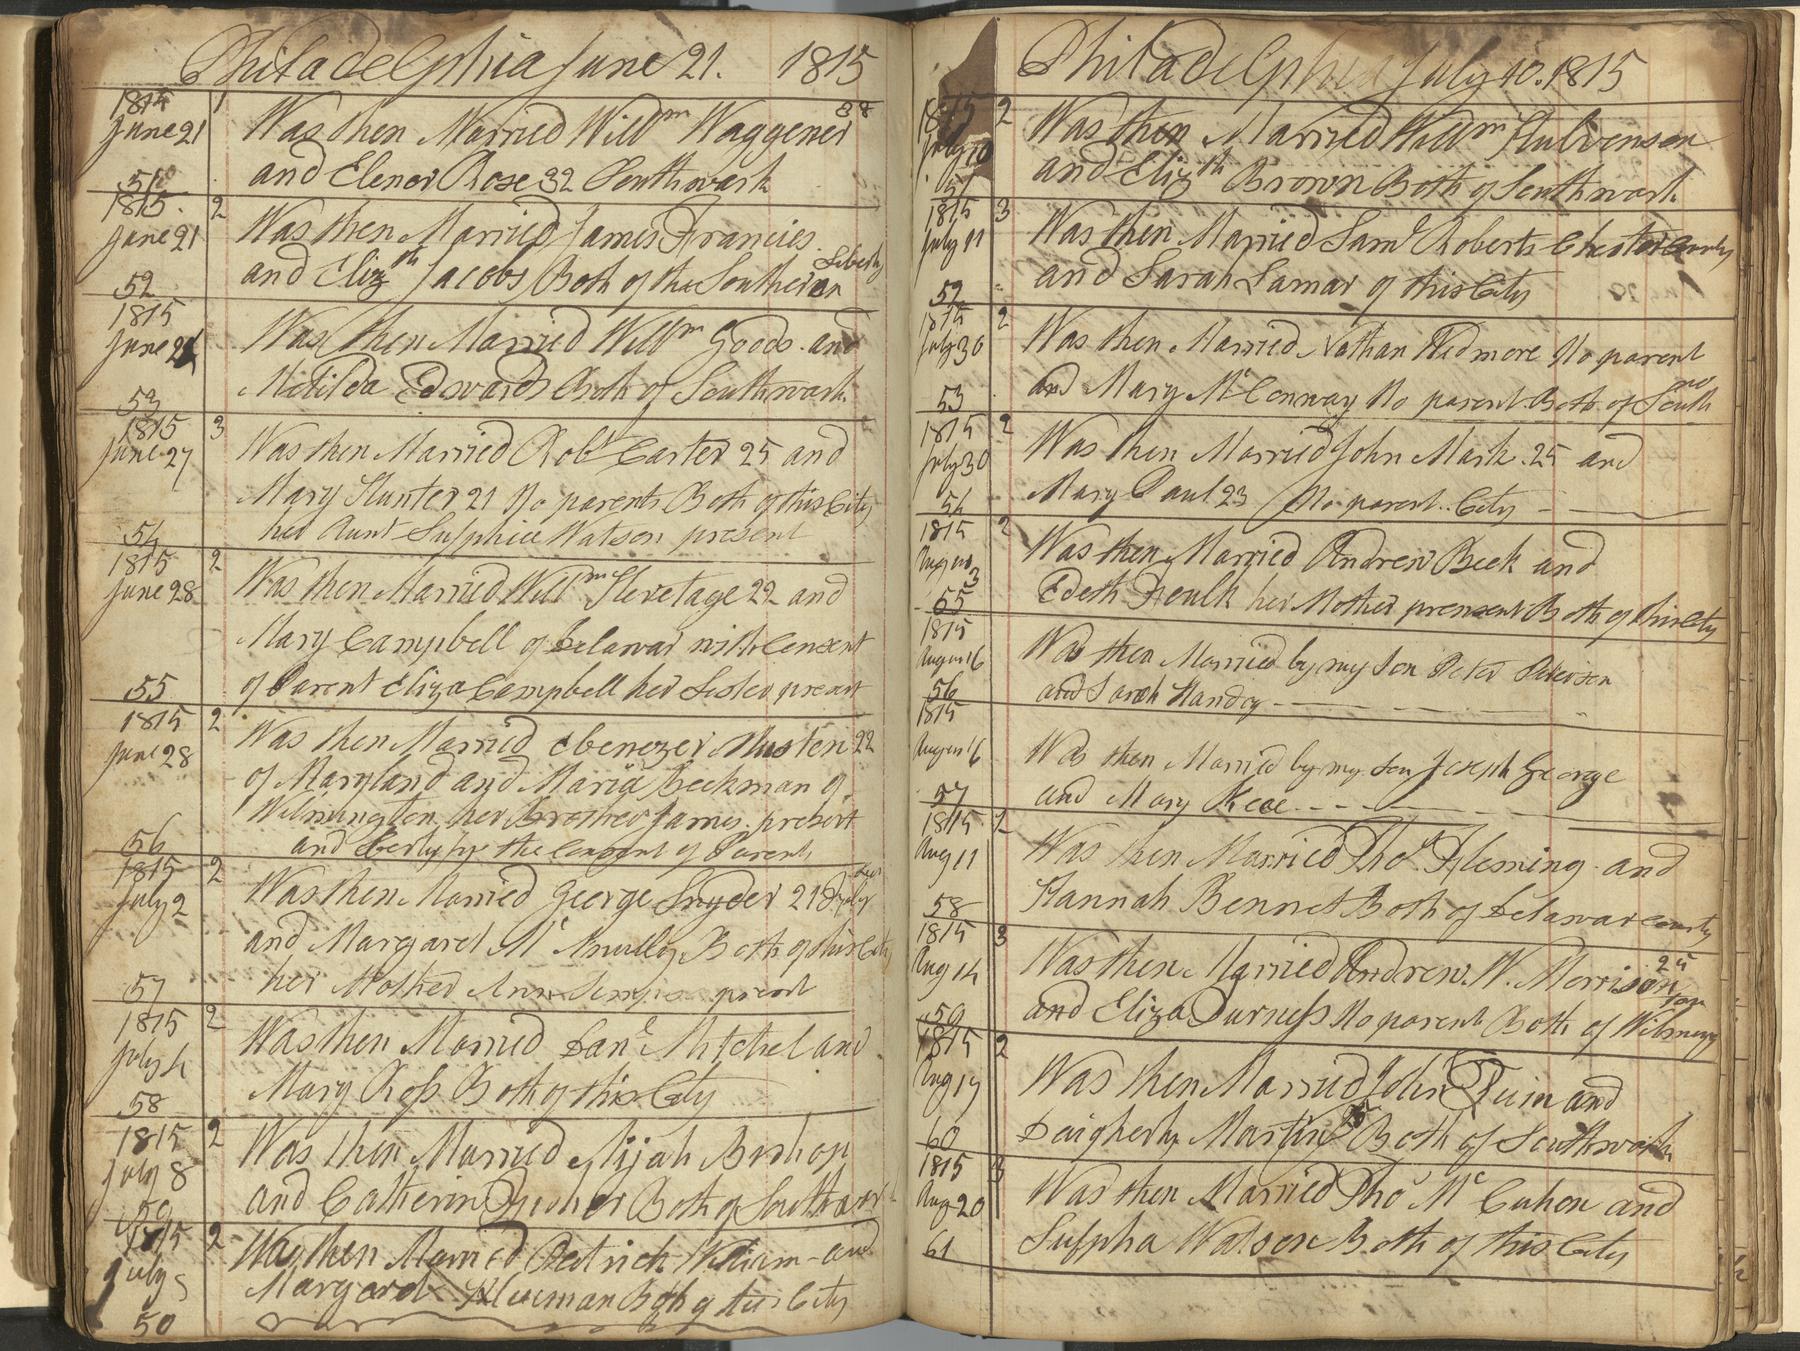 Philadelphia June 21. 1815
1815 1 Was then Married Willm Waggener 38
June 21 and Elenor Rose 32 Southwark
51
1815. 2 Was then Married James Francies
June 21 and Elizth Jacobs Both of the Southeron Liberty
52
1815 Was then Married Willm Goods and
June 21 Matilda Edwards Both of Southwark
53
1815 3 Was then Married Robt Carter 25 and
June 27 Mary Hunter 21 No parents Both of this City
her Aunt Sufphia Watson present
54
1815 2 Was then Married Willm Hevetage 22 and
June 28 Mary Campbell of Delawar with Consent
of Parent Eliza Campbell her Sister present
55
1815 2 Was then Married Ebenezer 22
June 28 of Maryland and Maria Beekman of
Wilmington her Brother James present
and the Consent of Parents
56
1815 2 Was then Married George Snyder 21
July 2 and Margaret Mc Both of this City
her Mother Ann present
57
1815 2 Was then Married Danl Mitchel and
July 4 Mary Ross Both of this City
58
1815 2 Was then Married Elijah Bishop
July 8 and Catherin Both of Southwark
59
1815 2 Was then Married Detrich William and
July 9 Margaret Both of this City
50
Philadelphia July 10. 1815
1815 2 Was then Married Willm Hulvenson
July 10 and Elizth Brown Both of Southwark
51
1815 3 Was then Married Saml Roberts Chester County
July 11 and Sarah Lamar of this City
52
1815 2 Was then Married Nathan Widmore No parent
July 30 and Mary Mc Connway No parent Both of South
53
1815 2 Was then Married John Mark 25 and
July 30 Mary Paul 23 No parent City
54
1815 2 Was then Married Andrew Beek and
August 3 Edeth Foulk her Mother present Both of this City
55
1815 Was then Married by my Son Peter Peterson
August 6 and Sarah Handcy
56
1815
August 6 Was then Married by my Son Joseph George
and Mary Keae
57
1815 2 Was then Married Thos Fleming and
Aug 11 Hannah Bennet Both of Delawar County
58
1815 3 Was then Married Andrew. W. Morrison 25
Aug 14 and Eliza Furness No parent Both of Wilmington
59
1815 2 Was then Married John Quin and
Aug 17 Daigherty Martin 25 Both of Southwark
60
1815 3 Was then Married Thos Mc Cahon and
Aug 20 Sufpha Watson Both of this City
61